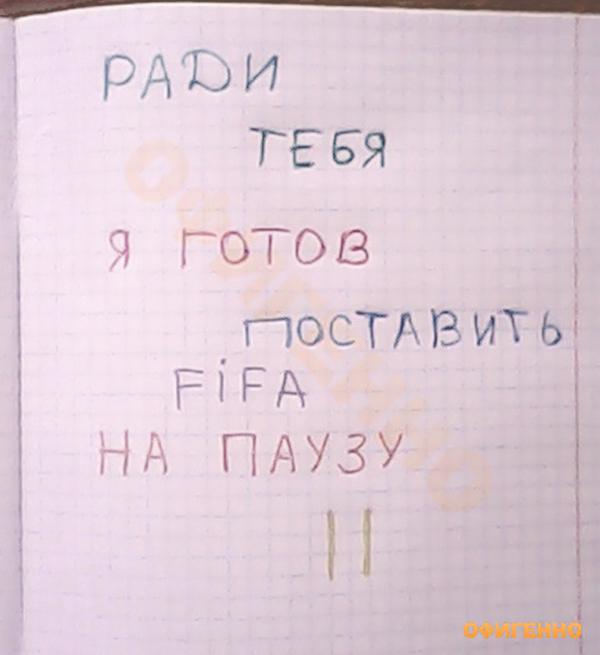 РАДИ
ТЕБЯ
Я ГОТОВ
ПОСТАВИТЬ
FiFA
НА ПАУЗУ
ОФИГЕННО
ОФИГЕННО